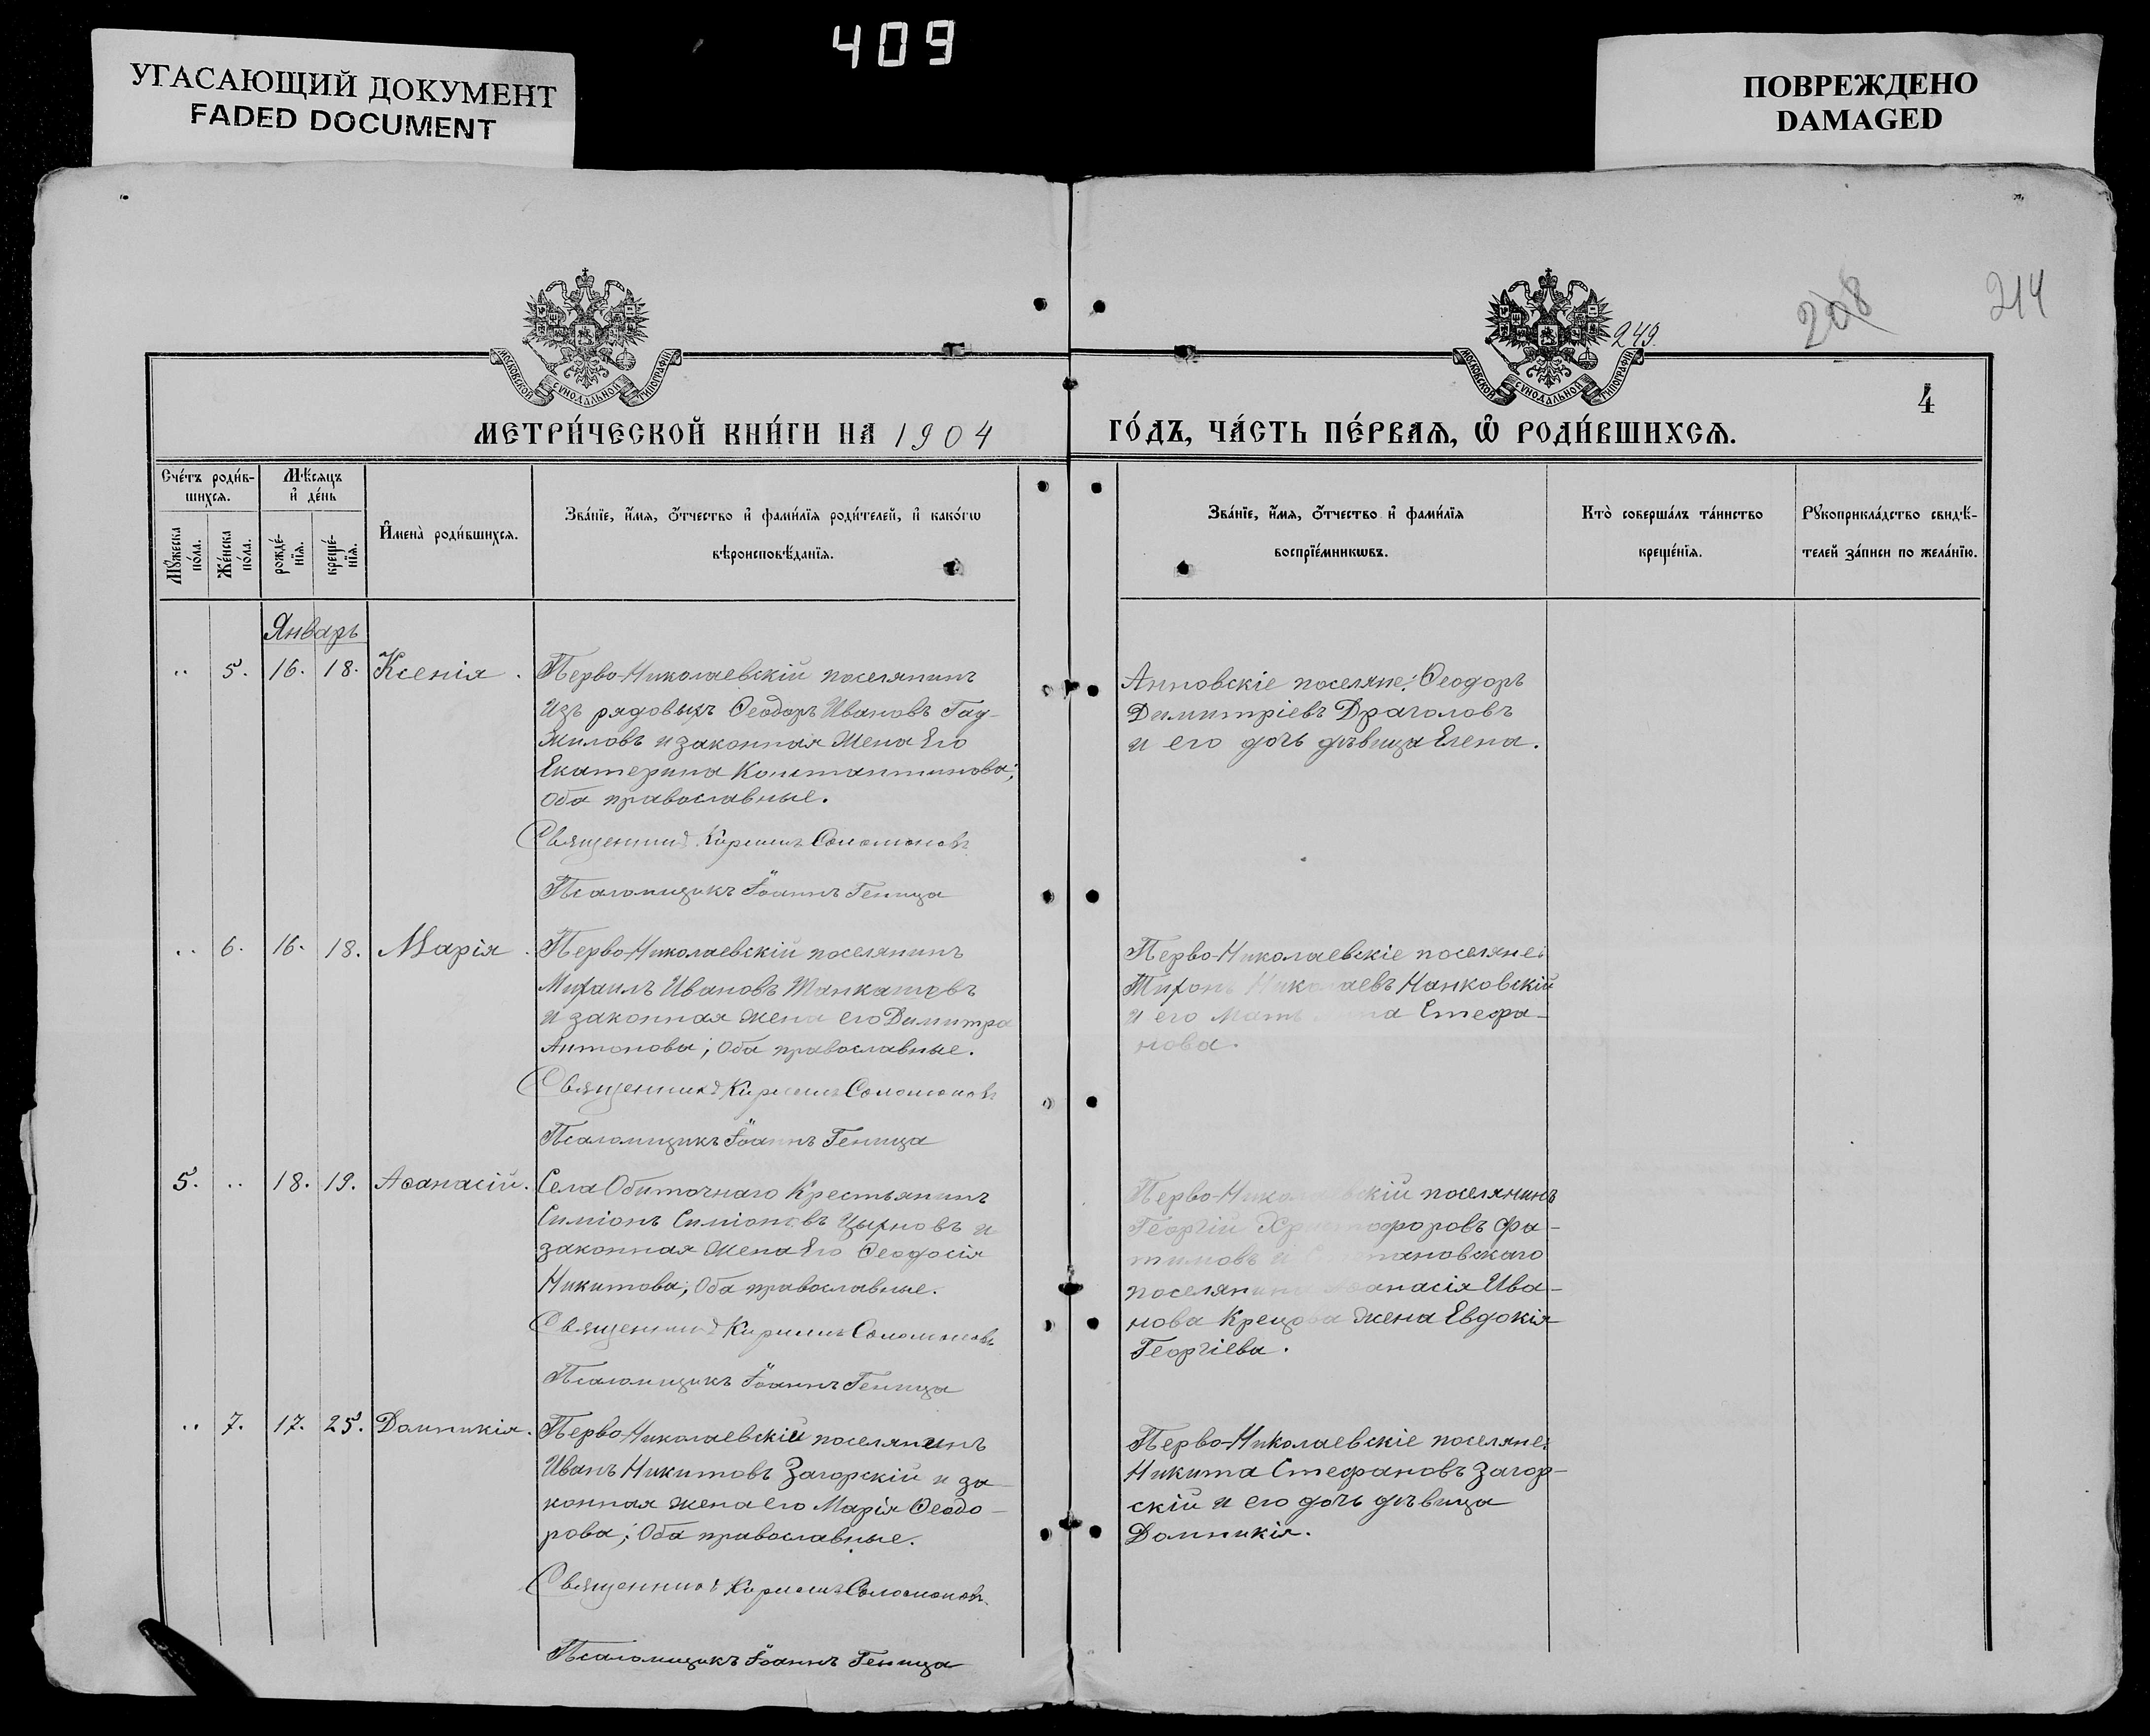 409
УГАСАЮЩИЙ ДОКУМЕНТ
FADED DOCUMENT
ПОВРЕЖДЕНО
DAMAGED
208
214
249.
4
МОСКОВСКОЙ СУНОДАЛЬНОЙ ТИПОГРАФІИ
МОСКОВСКОЙ СУНОДАЛЬНОЙ ТИПОГРАФІИ
МЕТРИ́ЧЕСКОЙ КНИ́ГИ НА 1904
ГО́ДЪ, ЧА́СТЬ ПЕ́РВАѦ, Ѽ РОДИ́ВШИХСѦ.
Сче́тъ роди́в-
шихсѧ.
Мѣ́сѧцъ
и҆ де́нь
Мꙋ́жеска
по́ла.
Же́нска
по́ла.
рожде́-
нїѧ.
креще́-
нїѧ.
И҆мена̀ роди́вшихсѧ.
Зва́нїе, и҆́мѧ, ѻ҆́тчество и҆ фами́лїѧ роди́телей, и҆ како́гѡ
вѣроисповѣ́данїѧ.
Зва́нїе, и҆́мѧ, ѻ҆́тчество и҆ фами́лїѧ
воспрїе́мникѡвъ.
Кто̀ соверша́лъ та́инство
креще́нїѧ.
Рꙋкоприкла́дство свидѣ́-
телей за́писи по жела́нїю.
Январь
.. 5. 16. 18. Ксенія.
Перво-Николаевскій поселянинъ
изъ рядовыхъ Ѳеодоръ Ивановъ Гай-
жиловъ и законная жена Его
Екатерина Константинова;
Оба православные.
Священникъ Кириллъ Соломоновъ
Псаломщикъ Іоаннъ Геница
Анновскіе поселяне: Ѳеодоръ
Димитріевъ Драголовъ
и его дочь дѣвица Елена.
.. 6. 16. 18. Марія.
Перво-Николаевскій поселянинъ
Михаилъ Ивановъ Танкашевъ
и законная жена его Димитра
Антонова; Оба православные.
Священникъ Кириллъ Соломоновъ
Псаломщикъ Іоаннъ Геница
Перво-Николаевскіе поселяне:
Тихонъ Николаевъ Нанковскій
и его мать Стефа-
нова.
5. .. 18. 19. Аѳанасій.
Села Обиточнаго Крестьянинъ
Симіонъ Симіоновъ Цырновъ и
законная жена Его Ѳеодосія
Никитова; Оба православные.
Священникъ Кириллъ Соломоновъ
Псаломщикъ Іоаннъ Геница
Перво-Николаевскій поселянинъ
Георгій Христофоровъ Фа-
тимовъ и
поселянина Аѳанасія Ива-
нова Крецова жена Евдокія
Георгіева.
.. 7. 17. 25. Домникія.
Перво-Николаевскій поселянинъ
Иванъ Никитовъ Загорскій и за-
конная жена его Марія Ѳеодо-
рова; Оба православные.
Священникъ Кириллъ Соломоновъ.
Псаломщикъ Іоаннъ Геница
Перво-Николаевскіе поселяне:
Никита Стефановъ Загор-
скій и его дочь дѣвица
Домникія.